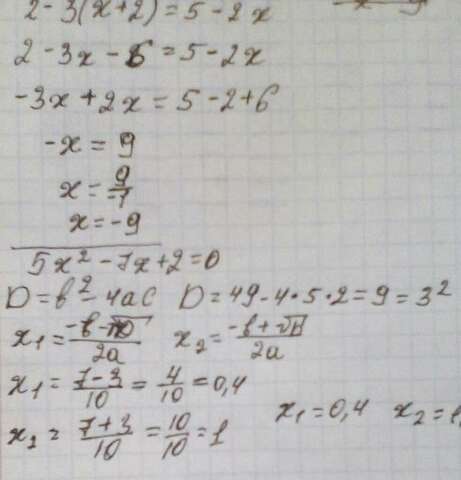 2 - 3(x+2) = 5 - 2x
2 - 3x - 6 = 5 - 2x
-3x + 2x = 5 - 2 + 6
-x = 9
x = 9/-1
x = -9
5x² - 7x + 2 = 0
D = b² - 4ac D = 49 - 4·5·2 = 9 = 3²
x₁ = (-b - √D)/2a x₂ = (-b + √D)/2a
x₁ = (7-3)/10 = 4/10 = 0,4
x₂ = (7+3)/10 = 10/10 = 1 x₁ = 0,4 x₂ = 1